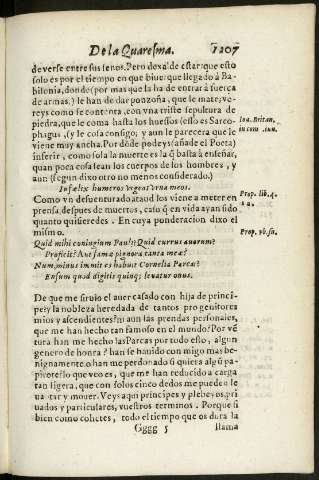 De la Quaresma. 1207
deverse entre sus senos. Pero dexalde estar: que esto
solo es por el tiempo en que biue: que llegado á Ba-
bilonia, donde (por mas que la ha de entrar á fuerça
de armas.) le han de dar ponzoña, que le mate; ve-
reys como se contenta, con vna triste sepultura de
piedra, que le coma hasta los huessos (esso es Sarco-
phagus,) y le cosa consigo; y aun le parecera que le
viene muy ancha. Por dōde podeys (añade el Poeta)
inferir, como sola la muerte es la q̄ basta á enseñar,
quan poca cosa sean los cuerpos de los hombres, y
aun (segun dixo otro no menos considerado.)
Infælix humeros vrgeat vrna meos.
Como vn desuenturado ataud los viene a meter en
prensa, despues de muertos, caso q̄ en vida ayan sido
quanto quisieredes. En cuya ponderacion dixo el
mismo.
Quid mihi coniugium Pauli? Quid currus auorum?
Proficit? Aut famæ pignora tanta meæ?
Num minus immitis habuit Cornelia Parcas?
En sum quod digitis quinq; leuatur onus.
De que me siruio el auer casado con hija de princi-
pe? y la nobleza heredada de tantos progenitores
mios y ascendientes? ni aun las prendas personales,
que me han hecho tan famoso en el mundo? Por vē
tura han me hecho las Parcas por todo esto, algun
genero de honra? han se hauido con migo mas be-
nignamente. o han me perdonado si quiera algū pa-
pirote? lo que veo es, que me han reducido a carga
tan ligera, que con solos cinco dedos me pueden le
uantar y mouer. Veys aqui principes y plebeyos, pri
uados y particulares, vuestros terminos. Porque si
bien como cohetes, todo el tiempo que os dura la
Gggg 5 llama
Ioa. Britan.
Prop. lib. 4.
Prop. vb. su.